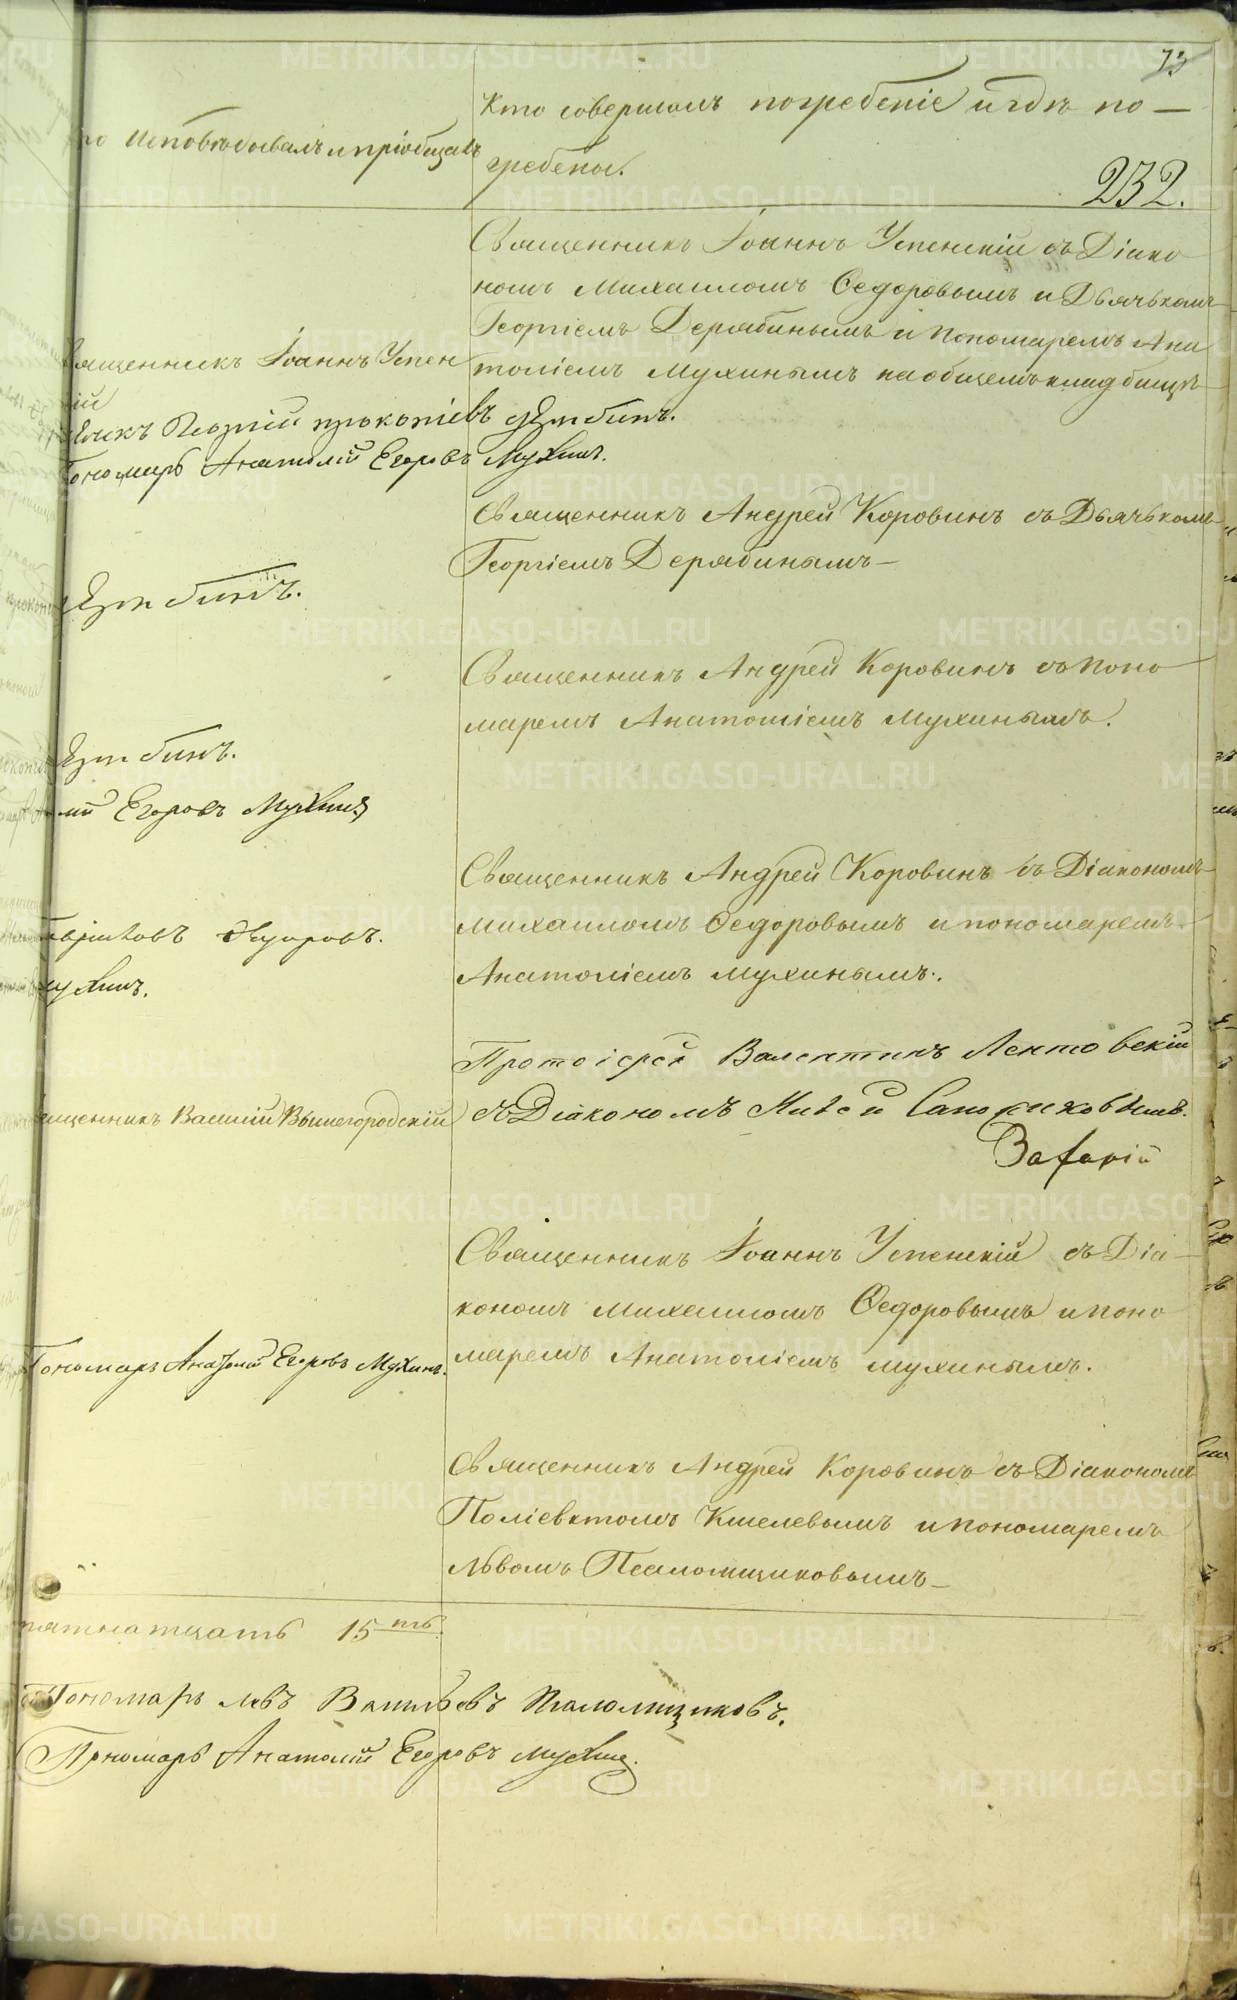 73
Кто совершалъ погребеніе и гдѣ по-
гребены.
232.
исповѣдывалъ и пріобщалъ
Священникъ Іоаннъ Успенскій съ Діако
номъ Михаиломъ Ѳедоровымъ и Дьячькомъ
Георгіемъ Дерябинымъ и пономаремъ Ана
толіемъ Мухинымъ на общемъ кладбищѣ
ященникъ Іоаннъ Успен
ій
Георгій Прокопіевъ Дерябинъ.
ономарь Анатолій Егоровъ Мухинъ.
Священникъ Андрей Коровинъ съ Дьячькомъ
Георгіемъ Дерябинымъ —
Дерябинъ.
Священникъ Андрей Коровинъ съ поно
маремъ Анатоліемъ Мухинымъ.
Дерябинъ.
лій Егоровъ Мухинъ
Священникъ Андрей Коровинъ съ Діакономъ
Михаиломъ Ѳедоровымъ и пономаремъ
Анатоліемъ Мухинымъ.
Ѳедоровъ.
ухинъ.
Протоіерей Валентинъ Лентовскій
съ Діакономъ Сапожниковымъ.
ященникъ Василій Вышегородскій
Священникъ Іоаннъ Успенскій съ Діа-
кономъ Михаиломъ Ѳедоровымъ и поно
маремъ Анатоліемъ Мухинымъ.
Пономарь Анатолій Егоровъ Мухинъ.
Священникъ Андрей Коровинъ съ Діакономъ
Поліевктомъ Киселевымъ и пономаремъ
Львомъ Псаломщиковымъ —
пятнатцать 15 ть.
Пономарь Левъ Васильевъ Псаломщиковъ.
Пономарь Анатолій Егоровъ Мухинъ.
METRIKI.GASO-URAL.RU